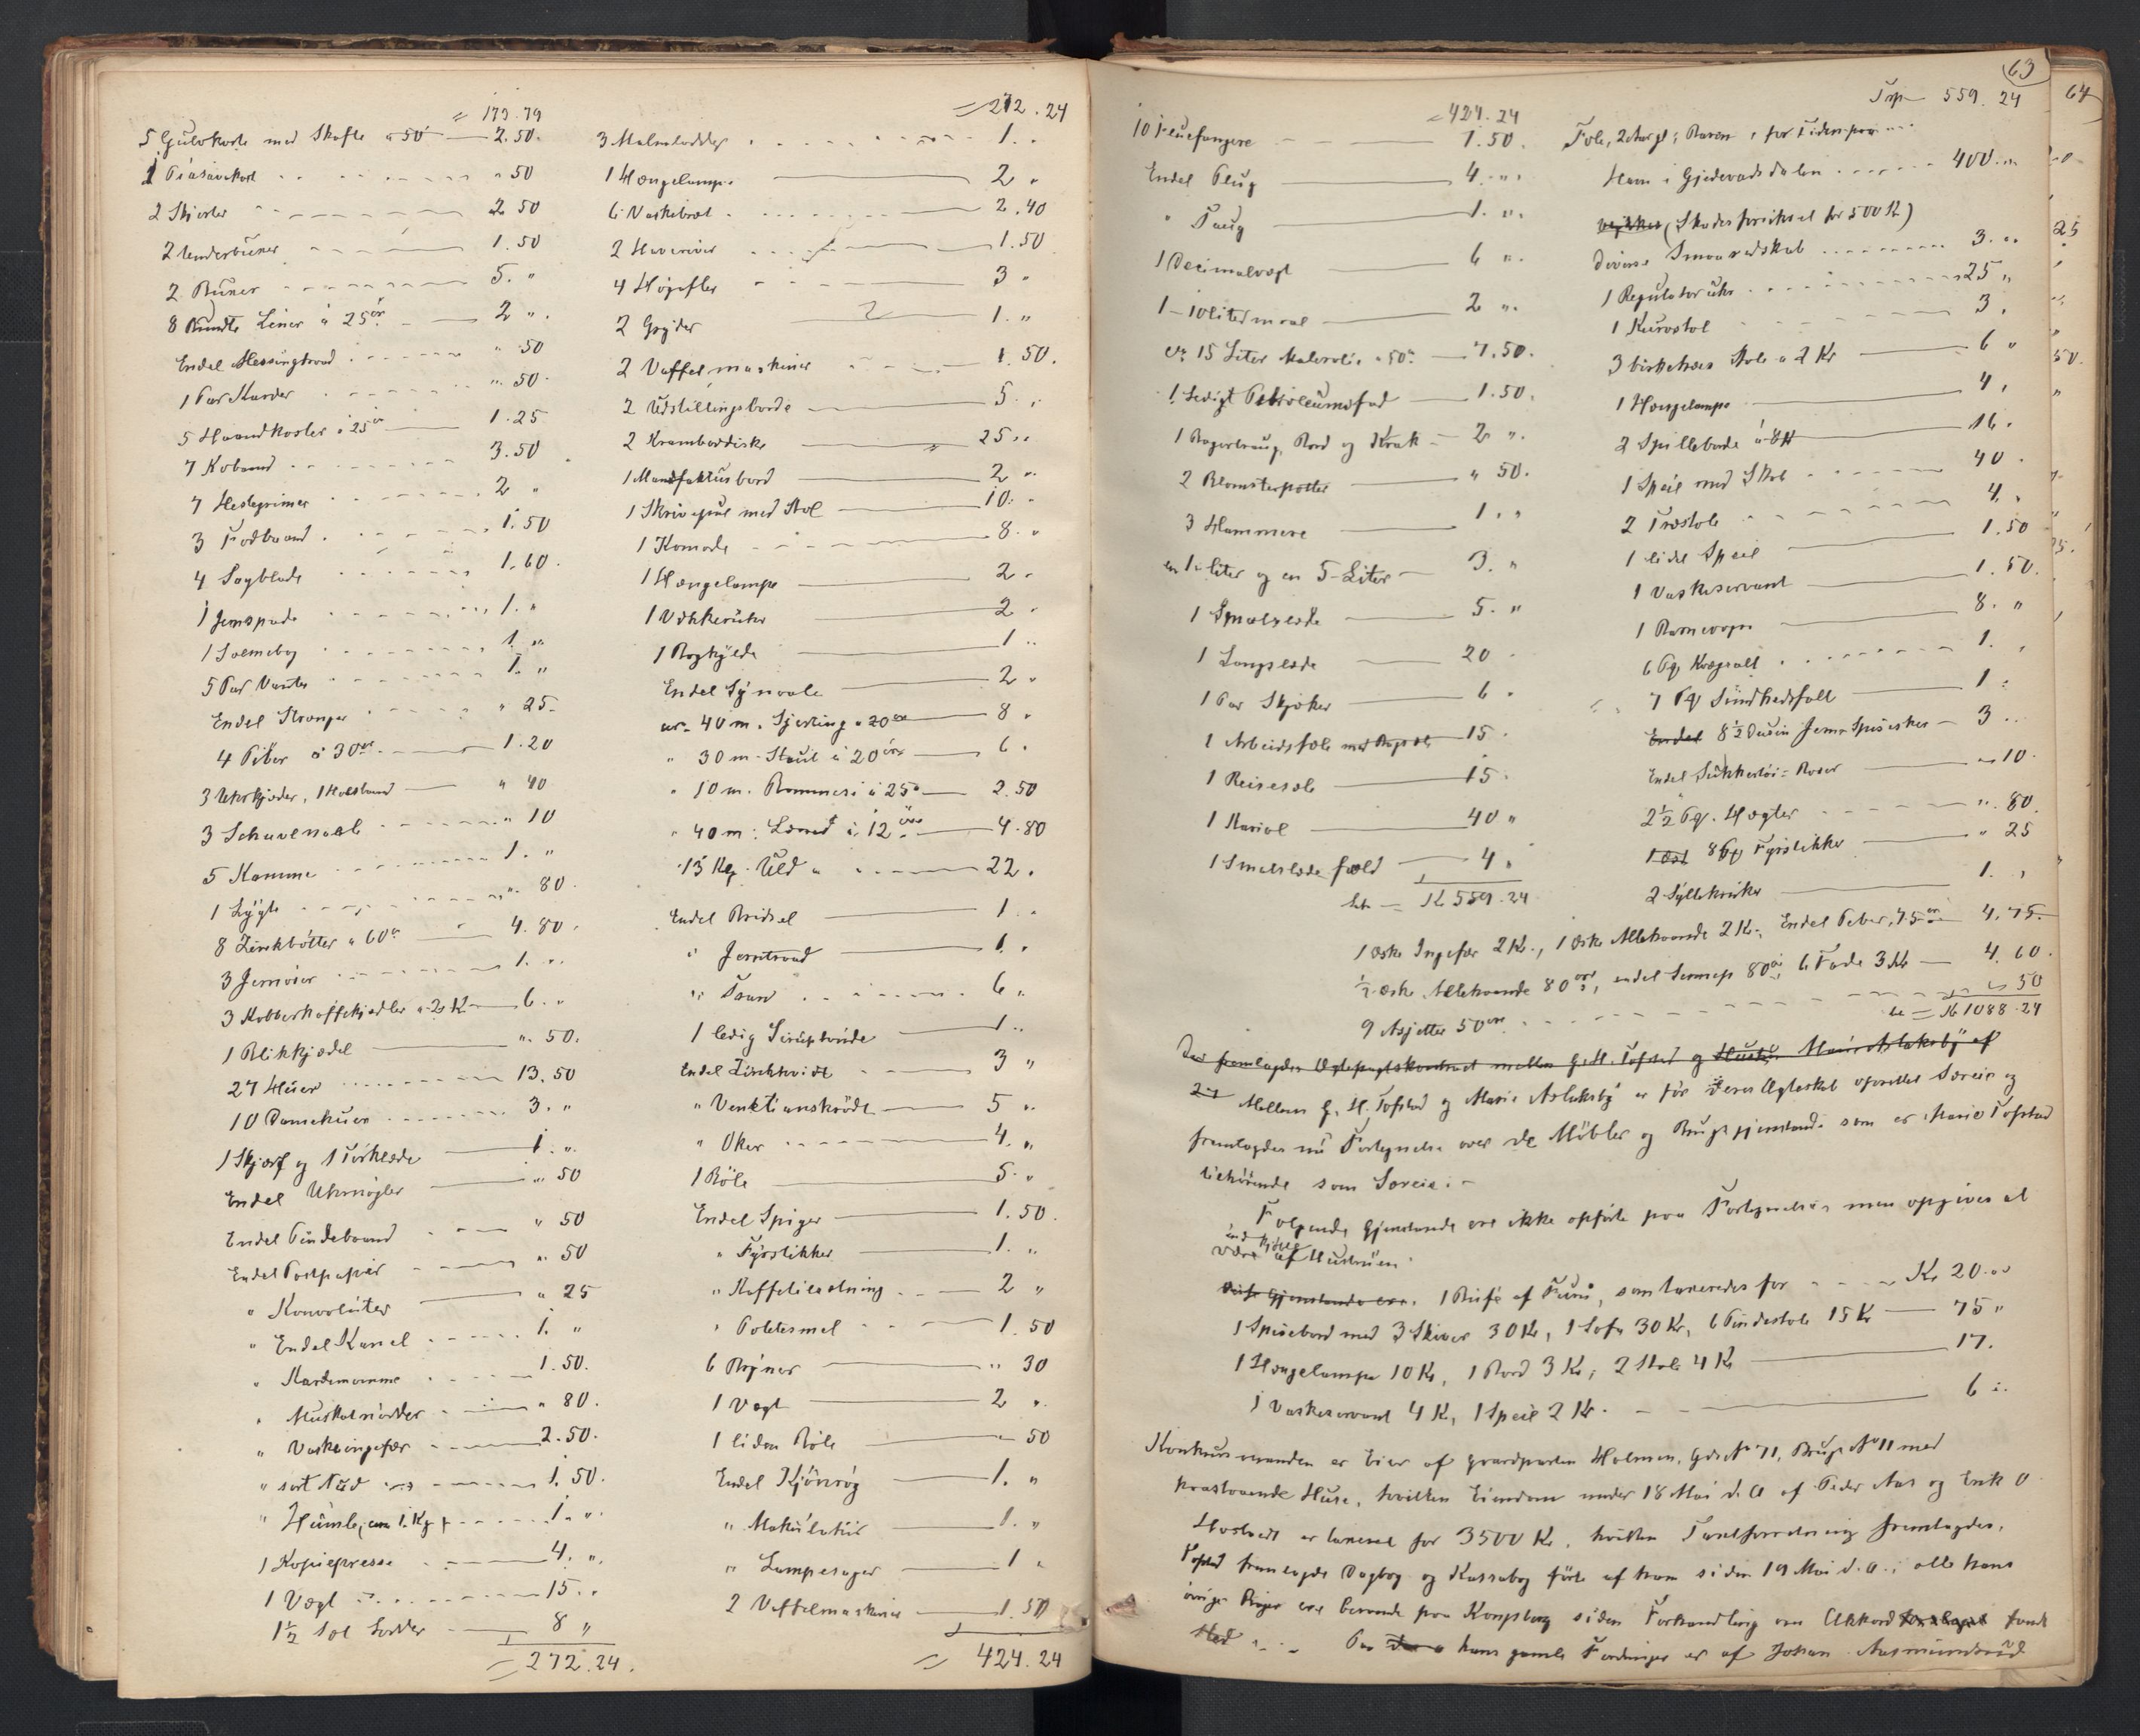 = 173.79
5 Gulvkoste med Skafte a 50 2.50.
1 Piasavakost " 50
2 Skjorter 2.50
2 Underbuxer 1.50
2 Buxer 5. "
8 Bundter Liner a 25 ør 2 ".
Endel Messingtraad " 50
1 Par Karder " 50.
5 Haandkoster a 25 ør 1.25
7 Kobaand 3.50
7 Hestegrimer 2 "
3 Fodbaand 1.50
4 Sagblade 1.60.
1 Jernspade 1. "
1 Salmebog 1. "
5 Par Vanter 1. "
Endel Strænger " 25.
4 Piber a 30 øre 1.20
3 Uhrkjæder, 1 Halsbaand " 40
3 Skruenøgl " 10
5 Kamme 1. "
1 Lygte " 80.
8 Zinkbøtter a 60 ø 4.80.
3 Jernøser 1. "
3 Kobberkaffekjedler a 2 Kr 6. "
1 Blikkjedel " 50.
27 Huer 13.50
10 Damehuer 3. "
1 Skjærf og 1 Tørklæde 1. "
Endel Uhrnøgler " 50
Endel Pandebaand " 50
Endel Postpapir " 50
" Konvoluter " 25
" Endel Kanel 1. "
" Kardemomme 1.50.
" Muskatnødder " 80.
" Vaskeingefær 2.50.
" sort Sæd 1.50.
" Humle, ca 1. Kg 1. "
1 Kopiepresse 4. ".
1 Vægt 15. "
1½ Sæt Lodder 8 "
= 272.24.
= 272.24
3 Malmlodder 1. "
1 Hængelampe 2 "
6 Vaskebræt 2.40
2 Haveriver 1.50
4 Høgafler 3 "
2 Gryder 1. "
2 Vaffelmaskiner 1.50.
2 Udstillingsborde 5. "
2 Kramboddiske 25 "
1 Manufakturbord 2 "
1 Skrivepult med Stol 10. "
1 Komode 8. "
1 Hængelampe 2 "
1 Vækkeruhr 2 "
1 Boghylde 1 "
Endel Synaale 2 "
ca. 40 m. Sjerting a 20 øre 8 "
" 30 m. Stout a 20 øre 6 "
" 10 m. Bommesi a 25 ø 2.50
" 40 m. Lærred a 12 øre 4.80
" 15 Kg. Uld a 22.
Endel Bidsel 1. "
" Jerntraad 1. "
" Traad 6 "
1 ledig Siruptønde 1 "
Endel Zinkhvidt 3 "
" Venetianskrødt 5 "
" Oker 4. "
1 Bøle 5. "
Endel Spiger 1.50.
" Fyrstikker 1. "
" Kaffetilsætning 2 "
" Potetesmel 1.50
6 Bryner " 30
1 Vægt 2 ".
1 liden Bøle " 50
Endel Kjønrøg 1. "
" Makulatur 1. "
" Lampesager 1 "
2 Vaffelmaskiner 1.50
= 424.24
63
= 424.24
10 Fluefangere 1.50.
Endel Plug 4. "
" Taug 1. "
1 Decimalvægt 6 ".
1 - 10 liter maal 2 ".
ca 15 Liter Maleolie a 50 ø 7.50.
1 Ledigt Petroleumsfad 1.50.
1 Bagertraug, Bord og Krak 2 ".
2 Blomsterpotter " 50.
3 Hammere 1. "
en 1 liter og en 5 Liter 3. "
1 Smalslæde 5. "
1 Langslæde 20
1 Par Skjæker 6 "
1 Arbeidssæle med 15
1 Reisesæle 15
1 Kariol 40 "
1 Smalslædefæld 4 "
Lat = Kr 559.24
Trsp 559.24
Fole, 2 Aar gl; Baaren , for Tiden paa
Havn i Gjedevadsdalen 400. "
(Skadesforsikret for 500 Kr)
Diverse Smaaredskab 3. "
1 Regulatoruhr 25 "
1 Kurvstol 3.
3 birketræs Stole a 2 Kr 6 "
1 Hængelampe 4.
2 Spilleborde a 8 Kr 16.
1 Speil med Skab 40.
2 Træstole 4. "
1 lidet Speil 1.50
1 Vaskeservant 1.50.
1 Barnevogn 8. "
6 Pk Kvægsalt 1. "
7 Pk Sundhedssalt 1 "
8½ Dusin Jern Spiseskeer 3 "
Endel Sukkertøi = Kasser " 10.
2½ Pk. Hægter " 80
8 Pk Fyrstikker " 25
2 Syltekrukker 1. "
1 Æske Ingefær 2 Kr., 1 Æske Allehaande 2 Kr., Endel Peber, 75 ør 4.75
½ Æske Allehaande 80 øre, endel Sennep 80 ør 6 Fade 3 Kr 4.60.
9 Asjetter 50 øre " 50
Lat = Kr 1088.24
Der fremlagdes Ægtepagtskontract mellem G. H. Tofstad og Hustru Marie Aslaksby af
27
Mellem G. H. Tofstad og Marie Aslaksby er før deres Ægteskab oprettet Særeie og
fremlagdes nu Fortegnelse over de Møbler og Brugsgjenstande som er Marie Tofstad
tilhørende som Særeie: -
Følgende Gjenstande ere ikke opførte paa Fortegnelsen men opgives at
være indkjøbte af Hustruen.
Disse Gjenstande ere. 1 Buffé af Furu, som taxeredes for Kr 20. "
1 Spisebord med 3 Skiver 30 Kr, 1 Sofa 30 Kr, 6 Pindestole 15 Kr 75 "
1 Hængelampe 10 Kr, 1 Bord 3 Kr, 2 Stole 4 Kr 17.
1 Vaskeservant 4 Kr, 1 Speil 2 Kr. 6 "
Konkursmanden er Eier af gaardparten Holmen, Gds No 71, Brugs No 11 med
paastaaende Huse, hvilken Eiendom under 18 Mai d. A af Peder Aas og Erik O
er taxeret for 3500 Kr, hvilken Taxtforretning fremlagdes.
Tofstad fremlagde Dagbog og Kassabog førte af ham siden 19 Mai d. A.; alle hans
øvrige Bøger ere beroende paa Kongsberg siden Forhandling om Akkord fandt
Sted hans gamle Fordringer er af Johan Aasmundrud
64